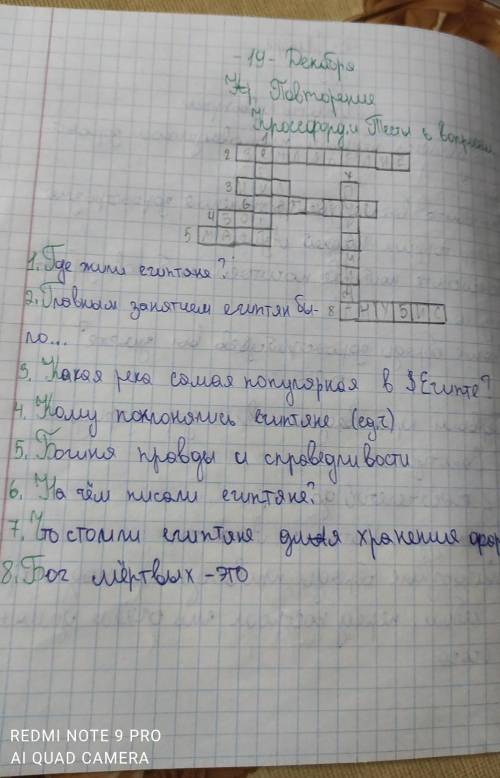 - 19 - Декабря
Кр. Повторение
Кроссворд и Тест с
1
2
7
3
6
4 Б О
5 М А А
1. Где жили египтяне?
2. Главным занятием египтян бы- 8 Н У Б И С
ло...
3. Какая река самая популярная в Египте?
4. Кому поклонялись египтяне (ед.ч)
5. Богиня правды и справедливости
6. На чём писали египтяне?
7. Что стоили египтяне для хранения
8. Бог мёртвых - это
REDMI NOTE 9 PRO
AI QUAD CAMERA